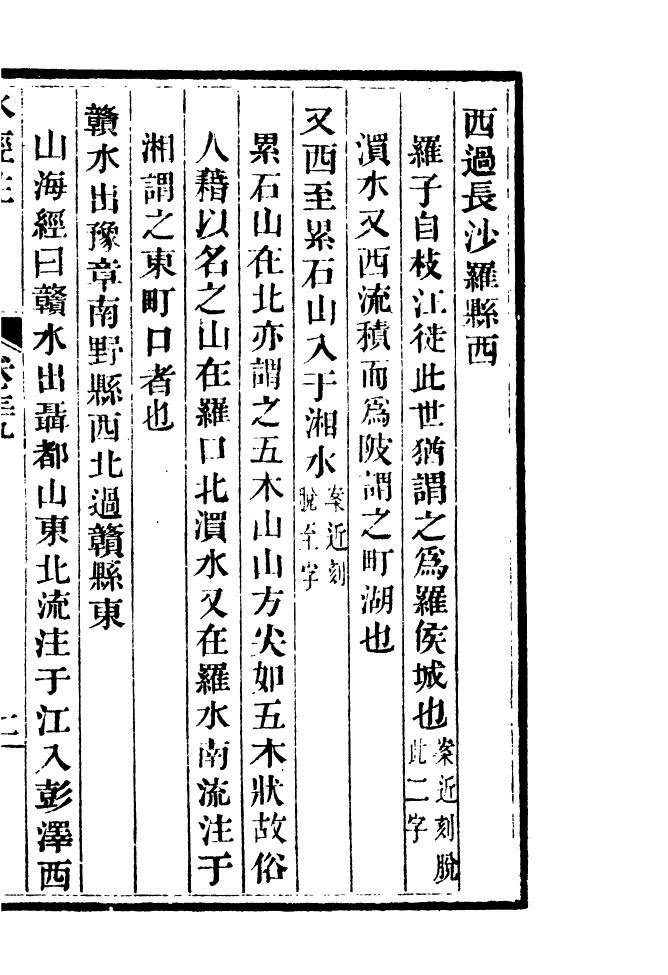 西過長沙羅縣西
羅子自枝江徙此世猶謂之爲羅侯城也案近刻脫此二字
濆水又西流積而爲陂謂之町湖也
又西至累石山入于湘水案近刻脫至字
累石山在北亦謂之五木山山方尖如五木狀故俗
人藉以名之山在羅口北濆水又在羅水南流注于
湘謂之東町口者也
贛水出豫章南野縣西北過贛縣東
山海經曰贛水出聶都山東北流注于江入彭澤西
水經注 卷三九